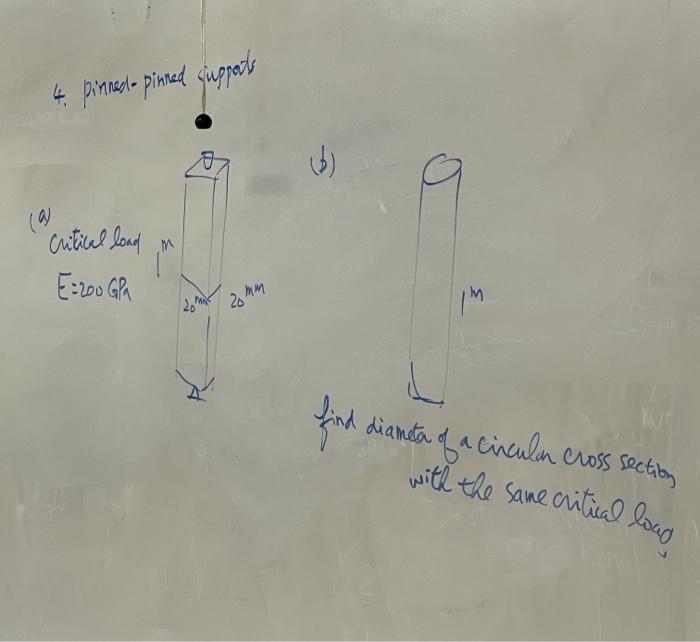 4. pinned-pinned supports
(a)
critical load
E=200 GPa
1 m
20 mm
20 mm
(b)
1 m
find diameter of a circular cross section
with the same critical load,